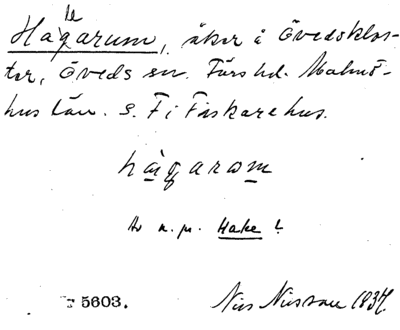 le
Hagarum, åker å Övedsklos-
ter, Öveds sn. Färs hd. Malmö-
hus län. S. F i Fiskarehus.
hågarom
Av n. pr. Hake?
5603. Nils Nilsson 1834.